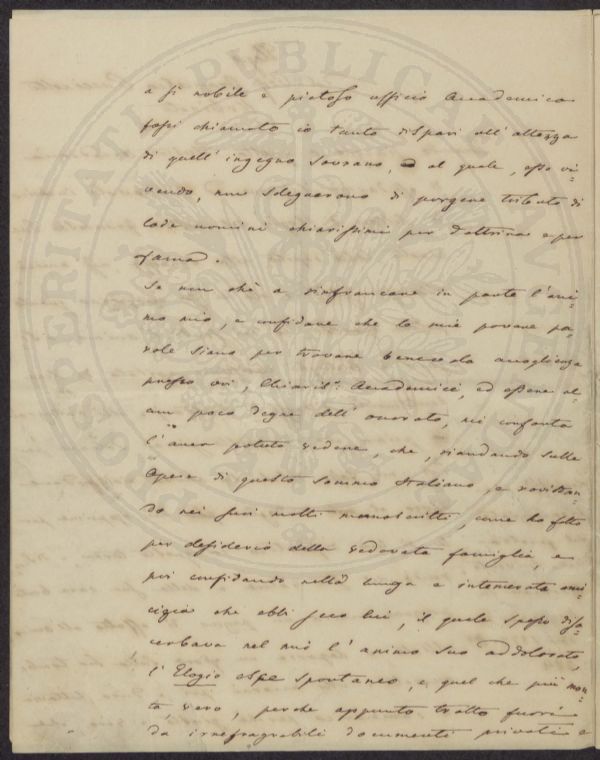 a sì nobile e pietoso ufficio Accademico
fossi chiamato io tanto dispari all'altezza
di quell'ingegno sovrano, al quale, esso vi-
vendo, non sdegnarono di porgere tributo di
lode uomini chiarissimi per dottrina e per
fama.
Se non chè a rinfrancare in parte l'ani-
mo mio, e confidare che le mie povere pa-
role siano per trovare benevola accoglienza
presso voi, Chiaris.mi Accademici, ed essere al-
cun poco degne dell'onorato, mi conforta
l'aver potuto vedere, che, riandando sulle
Opere di questo sommo Italiano, e rovistan-
do nei suoi molti manoscritti, come ho fatto
per desiderio della vedovata famiglia, e
poi confidando nella lunga e intemerata ami-
cizia che ebbi seco lui, il quale spesso disa-
cerbava nel mio l'animo suo addolorato,
l'Elogio esce spontaneo, e quel che più mon-
ta, vero, perchè appunto tratto fuori
da irrefragabili documenti privati e
PROSPERITATI PUBLICAE